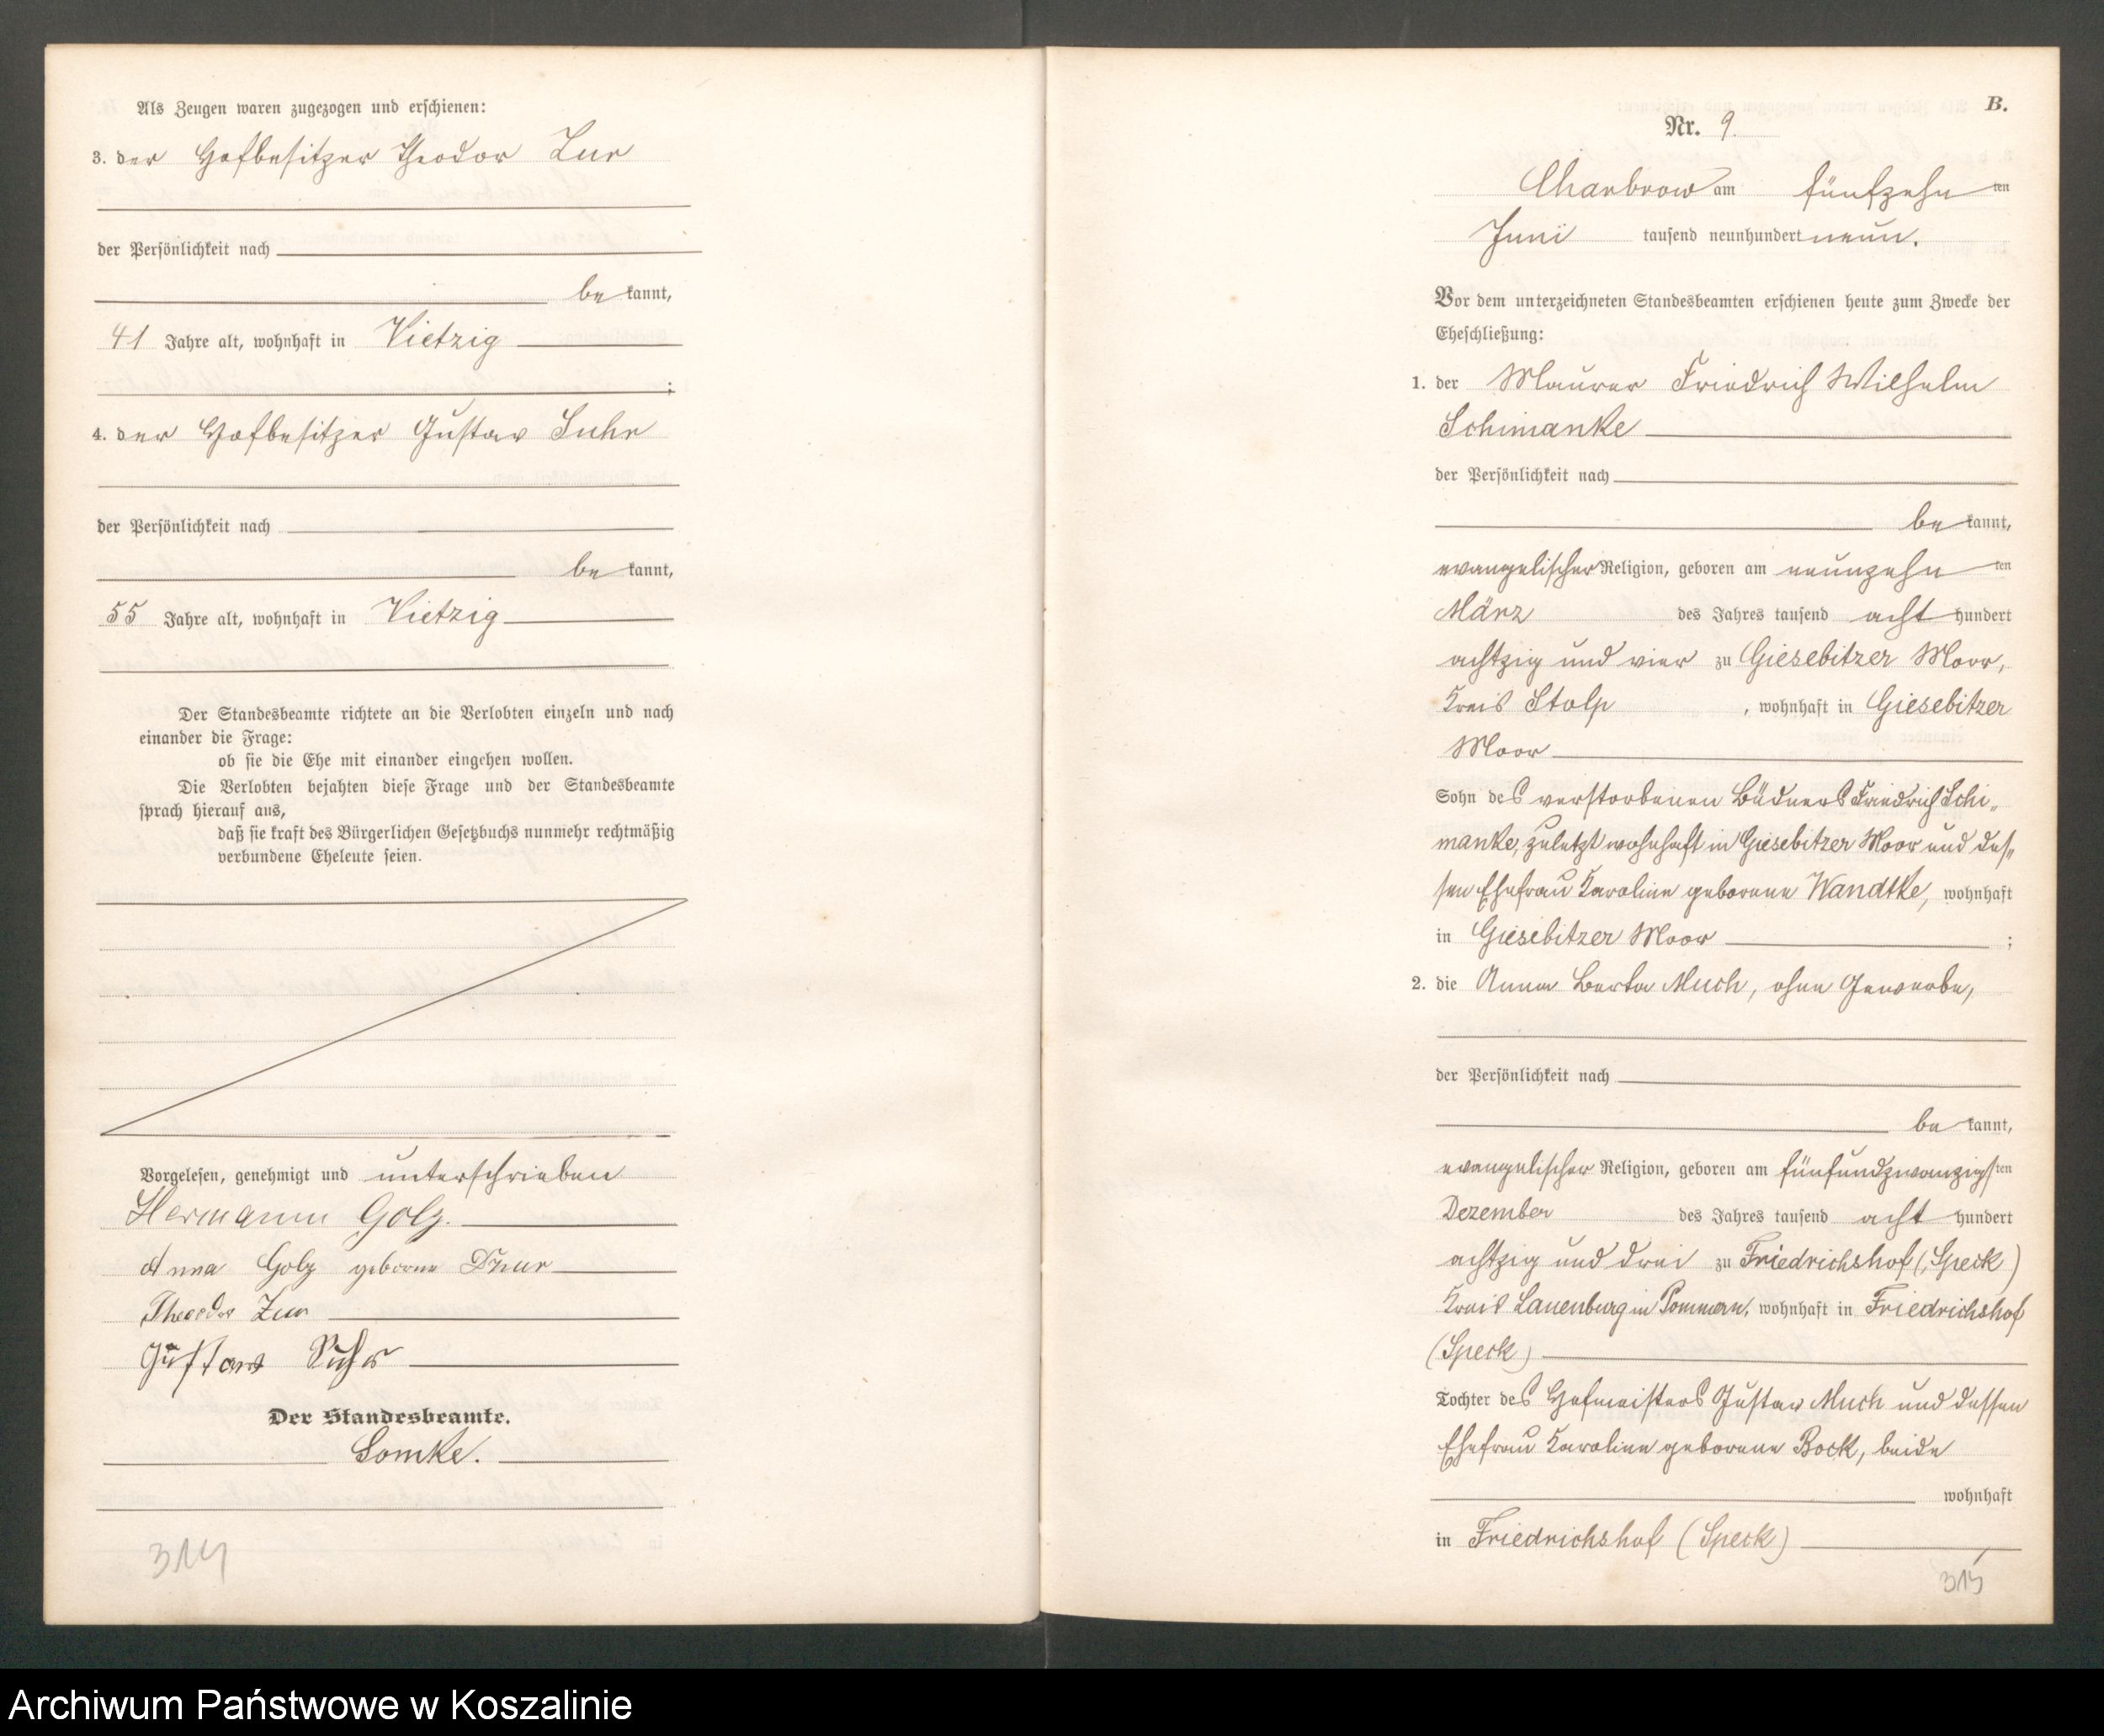 Als Zeugen waren zugezogen und erschienen:
3. der Hofbesitzer Theodor Zur
der Persönlichkeit nach
be kannt,
41 Jahre alt, wohnhaft in Vietzig
;
4. der Hofbesitzer Gustav Suhr
der Persönlichkeit nach
be kannt,
55 Jahre alt, wohnhaft in Vietzig
Der Standesbeamte richtete an die Verlobten einzeln und nach
einander die Frage:
ob sie die Ehe mit einander eingehen wollen.
Die Verlobten bejahten diese Frage und der Standesbeamte
sprach hierauf aus,
daß sie kraft des Bürgerlichen Gesetzbuchs nunmehr rechtmäßig
verbundene Eheleute seien.
Vorgelesen, genehmigt und unterschrieben
Hermann Golz.
Anna Golz geborne
Theodor Zur
Gustav Suhr
Der Standesbeamte.
Lomke.
314
B.
Nr. 9.
Charbrow am fünfzehn ten
Juni tausend neunhundert neun.
Vor dem unterzeichneten Standesbeamten erschienen heute zum Zwecke der
Eheschließung:
1. der Maurer Friedrich Wilhelm
Schimanke
der Persönlichkeit nach
be kannt,
evangelischer Religion, geboren am neunzehn ten
März des Jahres tausend acht hundert
achtzig und vier zu Giesebitzer Moor,
Kreis Stolp, wohnhaft in Giesebitzer
Moor
Sohn des verstorbenen Büdners Friedrich Schi„
manke, zuletzt wohnhaft in Giesebitzer Moor und des„
sen Ehefrau Karoline geborene Wandtke, wohnhaft
in Giesebitzer Moor ;
2. die Anna Berta Much, ohne Gewerbe,
der Persönlichkeit nach
be kannt,
evangelischer Religion, geboren am fünfundzwanzigsten
Dezember des Jahres tausend acht hundert
achtzig und drei zu Friedrichshof (Speck)
Kreis Lauenburg in Pommern, wohnhaft in Friedrichshof
(Speck)
Tochter des Hofmeisters Gustav Much und dessen
Ehefrau Karoline geborene Bock, beide
wohnhaft
in Friedrichshof (Speck)
315
Archiwum Państwowe w Koszalinie